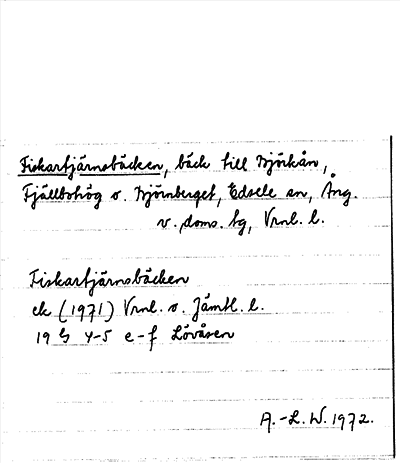 Fiskartjärnsbäcken, bäck till Björkån,
Fjällbohög o. Björnberget, Edsele sn, Ång.
v. doms. tg, Vrnl. l.
Fiskartjärnsbäcken
ek (1971) Vrnl. o. Jämtl. l.
19 G 4-5 e-f Lövåsen
A.-L. W. 1972.